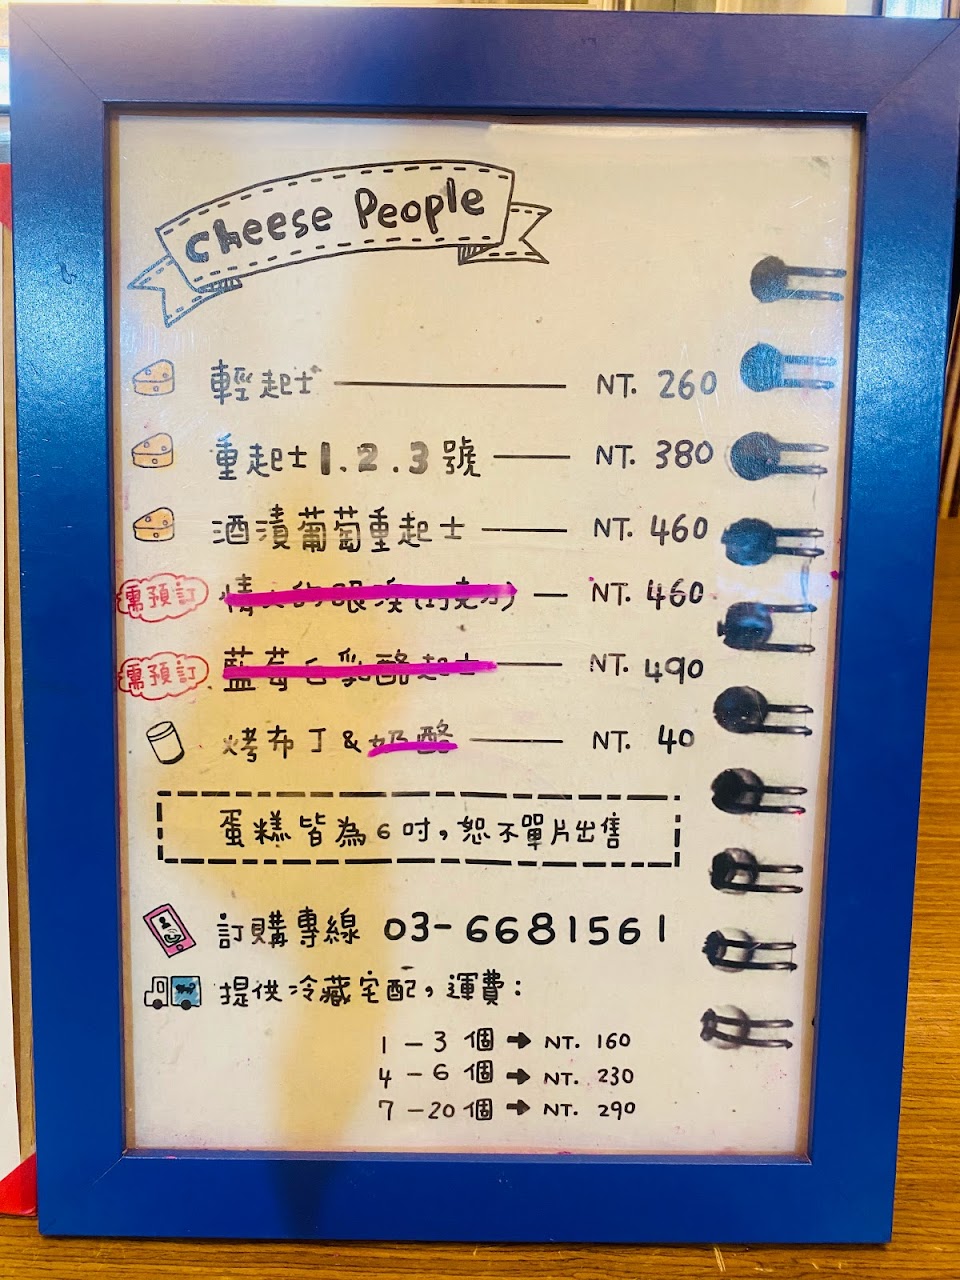 Cheese People
輕起士 NT. 260
重起士1.2.3號 NT. 380
酒漬葡萄重起士 NT. 460
需預訂 情人的眼淚(巧克力) NT. 460
需預訂 藍莓 乳酪起士 NT. 490
烤布丁&奶酪 NT. 40
蛋糕皆為6吋,恕不單片出售
訂購專線 03-6681561
提供冷藏宅配,運費:
1-3個➡NT. 160
4-6個➡NT. 230
7-20個➡NT. 290